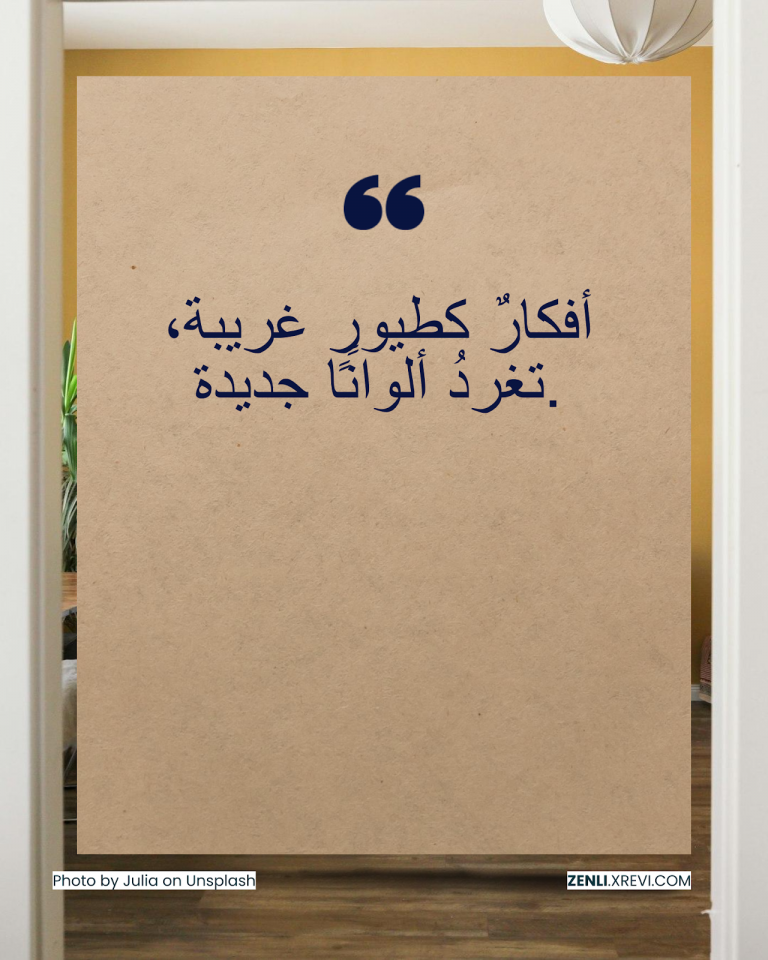 أفكارٌ كطيورٍ غريبة،
تغردُ ألوانًا جديدة.
Photo by Julia on Unsplash
ZENLI.XREVI.COM